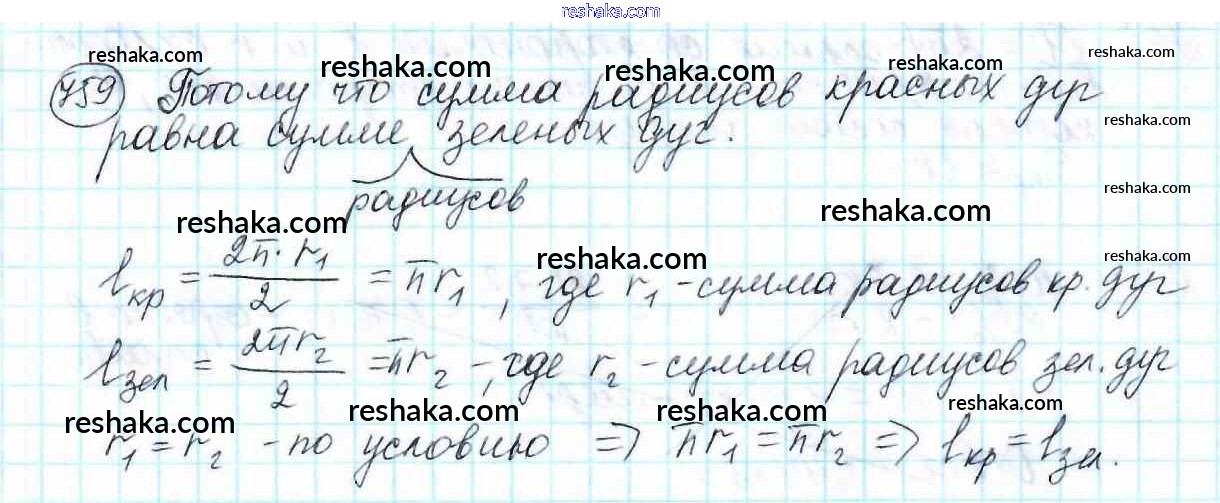 reshaka.com
reshaka.com reshaka.com reshaka.com reshaka.com reshaka.com
759 Потому что сумма радиусов красных дуг
reshaka.com
равна сумме зеленых дуг.
радиусов
reshaka.com
reshaka.com reshaka.com
l кр = 2π·r₁/2 = πr₁, где r₁ - сумма радиусов кр. дуг
reshaka.com reshaka.com
l зел = 2πr₂/2 = πr₂ -, где r₂ - сумма радиусов зел. дуг
reshaka.com
reshaka.com reshaka.com reshaka.com reshaka.com
r₁ = r₂ - по условию => πr₁ = πr₂ => l кр = l зел.